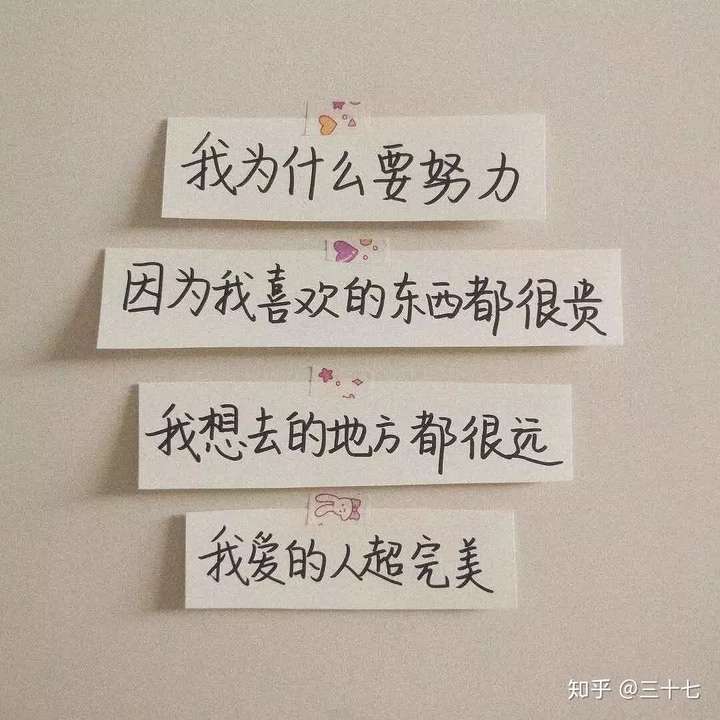 我为什么要努力
因为我喜欢的东西都很贵
我想去的地方都很远
我爱的人超完美
知乎 @三十七